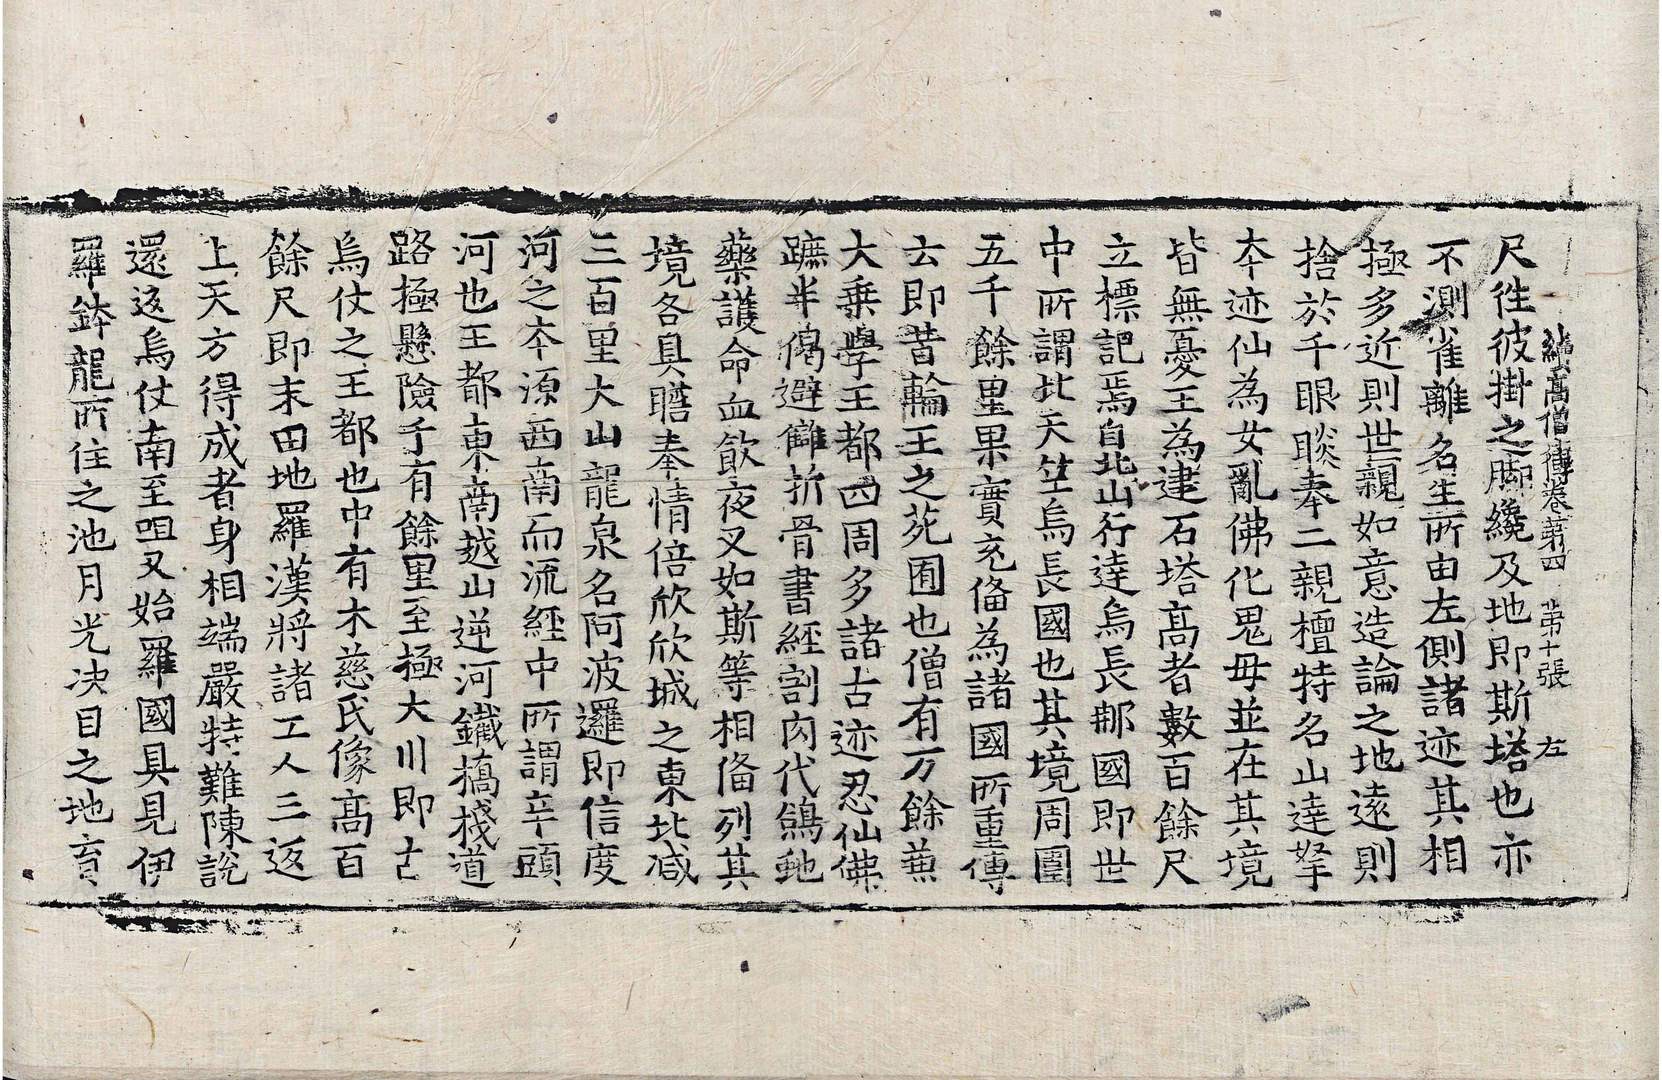 續高僧傳卷第四　第十張　左
尺徃彼掛之脚纔及地即斯塔也亦
不測雀離名生所由左側諸迹其相
極多近則世親如意造論之地遠則
捨於千眼睒奉二親檀特名山達拏
夲迹仙為女亂佛化鬼母並在其境
皆無憂王為建石塔高者數百餘尺
立標記焉自北山行達烏長那國即世
中所謂北天竺烏長國也其境周圍
五千餘里果實充俻為諸國所重傳
云即昔輪王之苑囿也僧有万餘蕪
大乗學王都四周多諸古迹忍仙佛
蹠半偈避讎折骨書經割肉代鴿虵
藥護命血飲夜叉如斯等相俻列其
境各具瞻奉情倍欣欣城之東北减
三百里大山龍泉名阿波邏即信度
河之夲源西南而流經中所謂辛頭
河也王都東南越山逆河鐵橋棧道
路極懸險千有餘里至極大川即古
烏仗之王都也中有木慈氏像高百
餘尺即末田地羅漢將諸工人三返
上天方得成者身相端嚴特難陳說
還返烏仗南至呾叉始羅國具見伊
羅鉢龍所住之池月光决目之地育